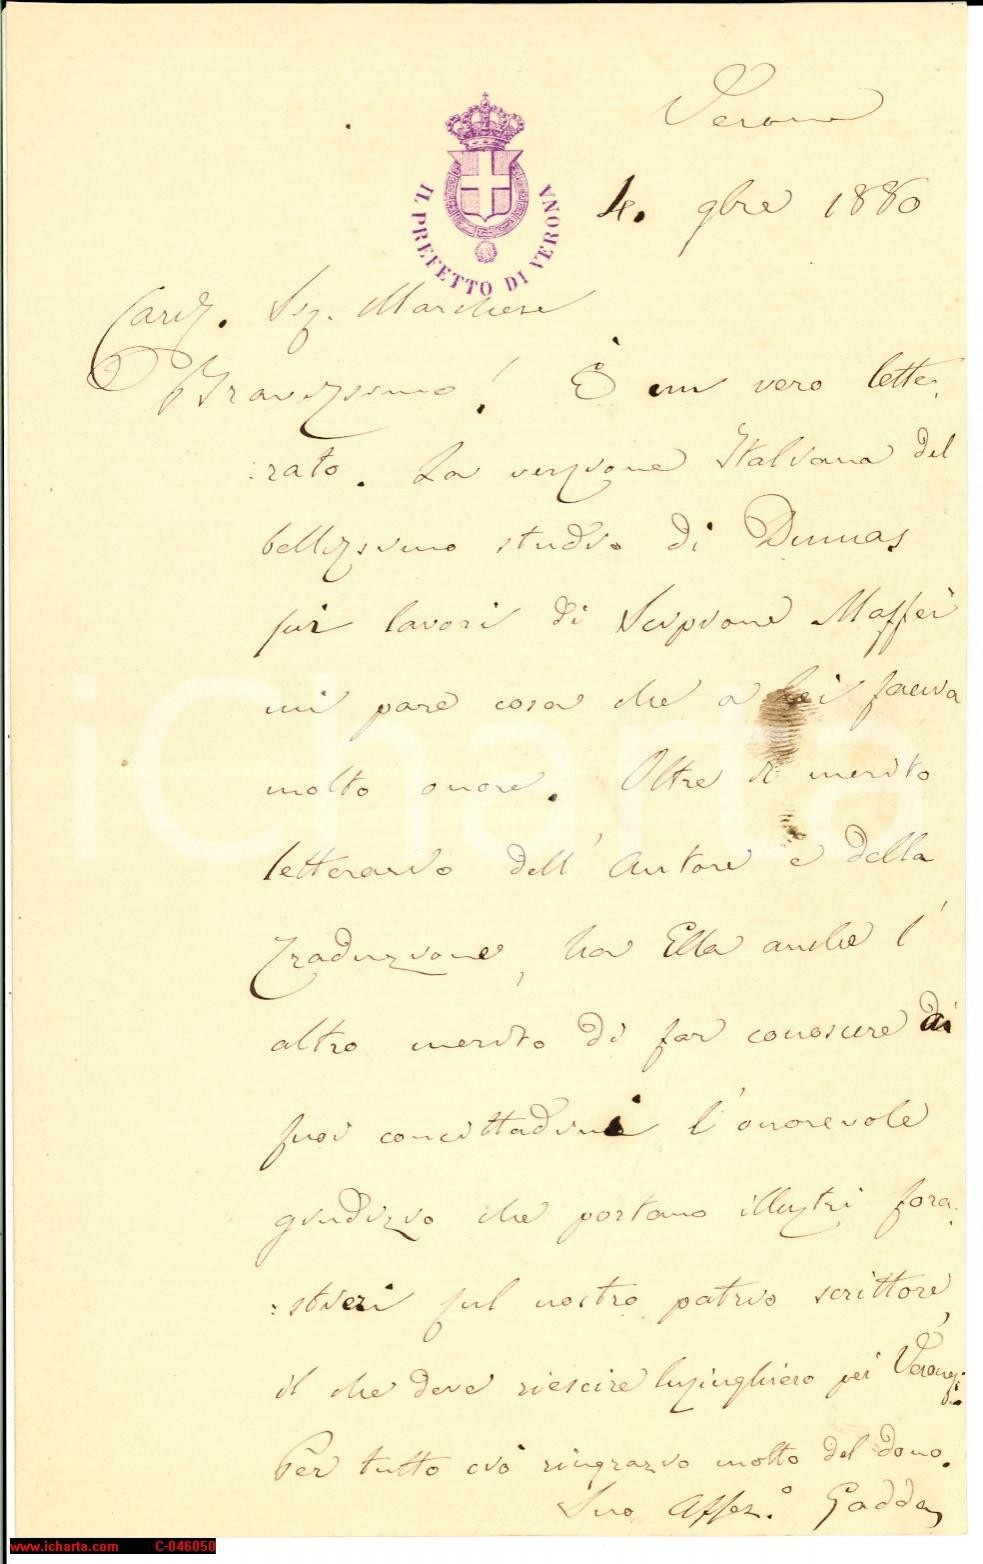 Verona
IL PREFETTO DI VERONA
4. 9bre 1880
Sig. Marchese
Bravissimo! È un vero lette:
:rato. La versione Italiana del
bellissimo studio di Dumas
sui lavori di Scipione Maffei
mi pare cosa che a Lei faccia
molto onore. Oltre il merito
letterario dell'Autore e della
traduzione, ha Ella anche l'
altro merito di far conoscere ai
suoi concittadini l'onorevole
giudizio che portano illustri fora:
:stieri sul nostro patrio scrittore,
il che deve riescire lusinghiero pei Veronesi.
Per tutto ciò ringrazio molto del dono.
Suo Affez.o Gadda
iCharta
www.icharta.com C-046050